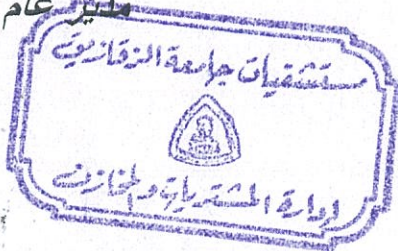 مدير عام
مستشفيات جامعة الزقازيق
إدارة المشتريات والمخازن